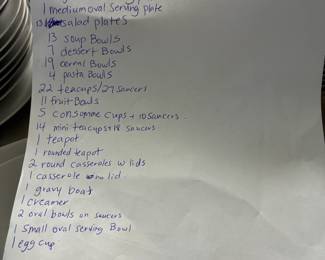 1 medium oval serving plate
13 salad plates
13 soup Bowls
7 dessert Bowls
19 cereal Bowls
4 pasta Bowls
22 teacups/27 saucers
11 fruit Bowls
5 consomme cups + 10 saucers
14 mini teacups + 18 saucers
1 teapot
1 rounded teapot
2 round casseroles w lids
1 casserole no lid
1 gravy boat
1 creamer
2 oval bowls on saucers
1 Small oval serving Bowl
1 egg cup